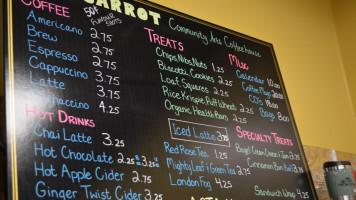 COFFEE
50¢ FLAVOUR SHOTS
PARROT
Community Arts Coffeehouse
Americano 2.75
Brew 2.
Espresso 2.75
Cappuccino 3.75
Latte 3.75
Mochaccino 4.25
HOT DRINKS
Chai Latte 3.75
Hot Chocolate 2.25
Hot Apple Cider 2.75
Ginger Twist Cider 3.75
TREATS
Chips, Nibs, Nuts 1.25
Biscotti, Cookies 2.25
Loaf Squares 2.25
Rice Krispie, Puff Wheat 2.25
Organic Health Bars 2.75
Iced Latte 3.75
Red Rose Tea 1.50
Mighty Leaf & Green Tea 2.25
London Fog 4.25
MISC
Calendar 10.00
Coffee Mugs
CD's
Bags
SPECIALTY TREATS
Bagel, Cream Cheese & Jam
Cinnamon Bun
Sandwich Wrap 4.75